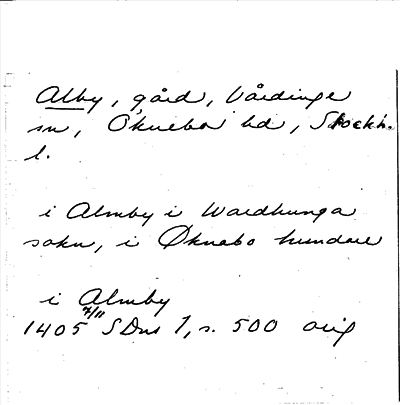 Alby, gård, Vårdinge
sn, Öknebo hd, Stockh.
l.
i Almby i Wardhunga
sokn, i Øknabo hundare
i Almby
1405 4/11 SDns 1, s. 500 orig